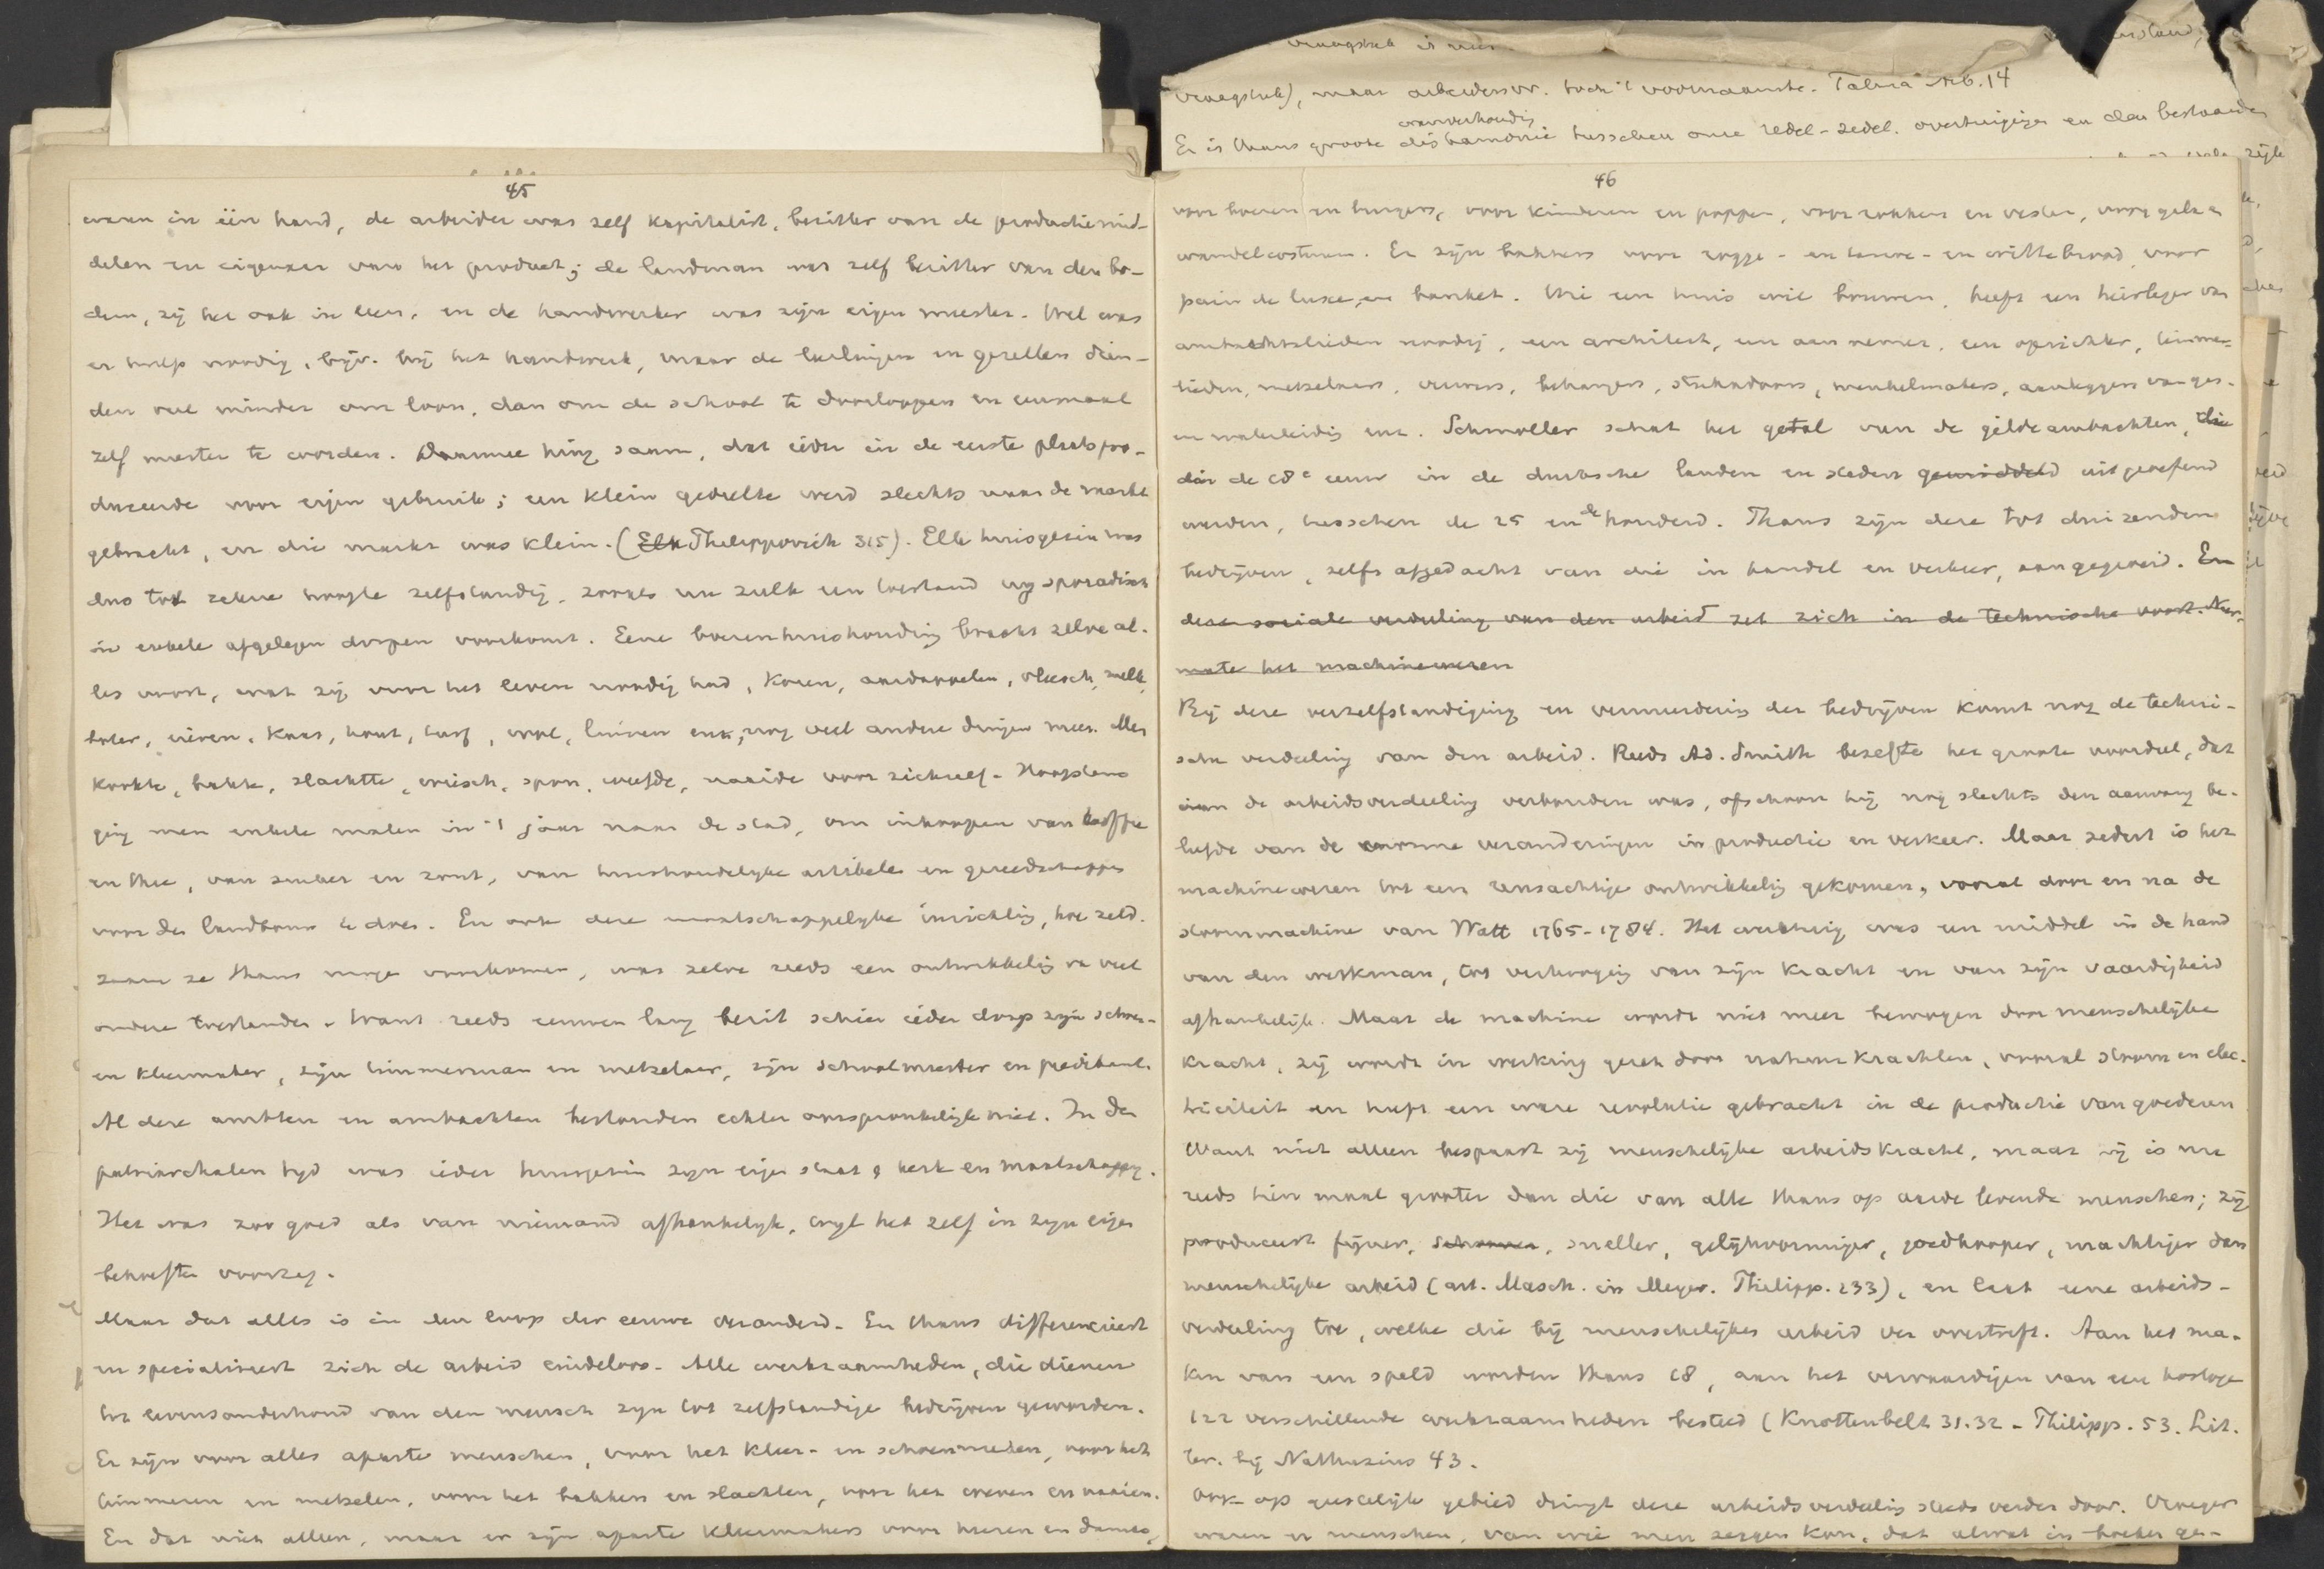 vraagstuk is
vraagstuk), maar arbeidersvr. toch 't voornaamste. Talma
Er is thans groote wanverhouding disharmonie tusschen onze redel-zedel. overtuigingen en den bestaanden
45
waren in één hand, de arbeider was zelf kapitalist, bezitter van de productiemid-
delen en eigenaar van het product; de landman was zelf bezitter van den bo-
dem, zij het ook in leen, en de handwerker was zijn eigen meester. Wel was
er hulp noodig, bijv. bij het handwerk, maar de leerlingen en gezellen dien-
den veel minder om loon, dan om de school te doorloopen en eenmaal
zelf meester te worden. Daarmee hing saam, dat ieder in de eerste plaats pro-
duceerde voor eigen gebruik; een klein gedeelte werd slechts naar de markt
gebracht, en die markt was klein. (Elk Philippovich 315). Elk huisgezin was
dus tot zekere hoogte zelfstandig, zooals nu zulk een toestand nog sporadisch
in enkele afgelegen dorpen voorkomt. Eene boerenhuishouding bracht zelve al-
les voort, wat zij voor het leven noodig had, koren, aardappelen, vleesch, melk,
boter, eieren, kaas, hout, turf, wol, linnen enz, nog veel andere dingen meer. Men
kookte, bakte, slachtte, wiesch, spon, weefde, naaide voor zichzelf. Hoogstens
ging men enkele malen in 't jaar naar de stad, om inkoopen van koffie
en thee, van suiker en zout, van huishoudelijke artikelen en gereedschappen
voor den landbouw te doen. En ook deze maatschappelijke inrichting, hoe zeld-
zaam ze thans moge voorkomen, was zelve reeds een ontwikkeling na veel
andere toestanden. Want reeds eeuwen lang bezit schier ieder dorp zijn schoen-
en kleermaker, zijn timmerman en metselaar, zijn schoolmeester en predikant.
Al deze ambten en ambachten bestonden echter oorspronkelijk niet. In den
patriarchalen tijd was ieder huisgezin zijn eigen staat, kerk en maatschappij.
Het was zoo goed als van niemand afhankelijk, wijl het zelf in zijn eigen
behoeften voorzag.
Maar dat alles is in den loop der eeuwen veranderd. En thans differencieert
en specialiseert zich de arbeid eindeloos. Alle werkzaamheden, die dienen
tot levensonderhoud van den mensch zijn tot zelfstandige bedrijven geworden.
Er zijn voor alles aparte menschen, voor het kleer- en schoenmaken, voor het
timmeren en metselen, voor het bakken en slachten, voor het weven en naaien.
En dat niet alleen, maar er zijn aparte kleermakers voor heeren en dames,
46
voor boeren en burgers, voor kinderen en poppen, voor rokken en vesten, voor gala en
wandelcostuum. Er zijn bakkers voor rogge- en tarwe- en wittebrood, voor
pain de luxe, en banket. Wie een huis wil bouwen, heeft een heirleger van
ambachtslieden noodig, een architect, een aannemer, een opzichter, timmer-
lieden, metselaars, ververs, behangers, stukadoors, meubelmakers, aanleggers van gas-
en waterleiding enz. Schmoller schat het getal van de gildeambachten, die
in de 18e eeuw in de duitsche landen en steden gemiddeld uitgeoefend
werden, tusschen de 25 en de honderd. Thans zijn deze tot duizenden
bedrijven, zelfs afgedacht van die in handel en verkeer, aangegroeid. En
deze sociale verdeeling van den arbeid zet zich in de technische voort. Naar-
mate het machinewezen
Bij deze verzelfstandiging en vermeerdering der bedrijven komt nog de techni-
sche verdeeling van den arbeid. Reeds Ad. Smith besefte het groote voordeel, dat
aan de arbeidsverdeeling verbonden was, ofschoon hij nog slechts den aanvang be-
leefde van de enorme veranderingen in productie en verkeer. Maar sedert is het
machinewezen tot een reusachtige ontwikkeling gekomen, vooral door en na de
stoommachine van Watt 1765-1784. Het werktuig was een middel in de hand
van den werkman, tot verhooging van zijn kracht en van zijn vaardigheid
afhankelijk. Maar de machine wordt niet meer bewogen door menschelijke
kracht, zij wordt in werking gezet door natuurkrachten, vooral stoom en elec-
triciteit en heeft een ware revolutie gebracht in de productie van goederen
Want niet alleen bespaart zij menschelijke arbeidskracht, maar zij is nu
reeds tien maal grooter dan die van alle thans op aarde levende menschen; zij
produceert fijner, schooner, sneller, gelijkvormiger, goedkooper, machtiger dan
menschelijke arbeid (art. Masch. in Meyer. Philipp. 233), en laat eene arbeids-
verdeeling toe, welke die bij menschelijken arbeid ver overtreft. Aan het ma-
ken van een speld worden thans 18, aan het vervaardigen van een horloge
122 verschillende werkzaamheden besteed (Knottenbelt 31.32 - Philipp. 53. Lit.
ter. bij Nathusius 43.
Ook op geestelijk gebied dringt deze arbeidsverdeeling steeds verder door. Vroeger
waren er menschen, van wie men zeggen kon, dat alwat in boeken ge-